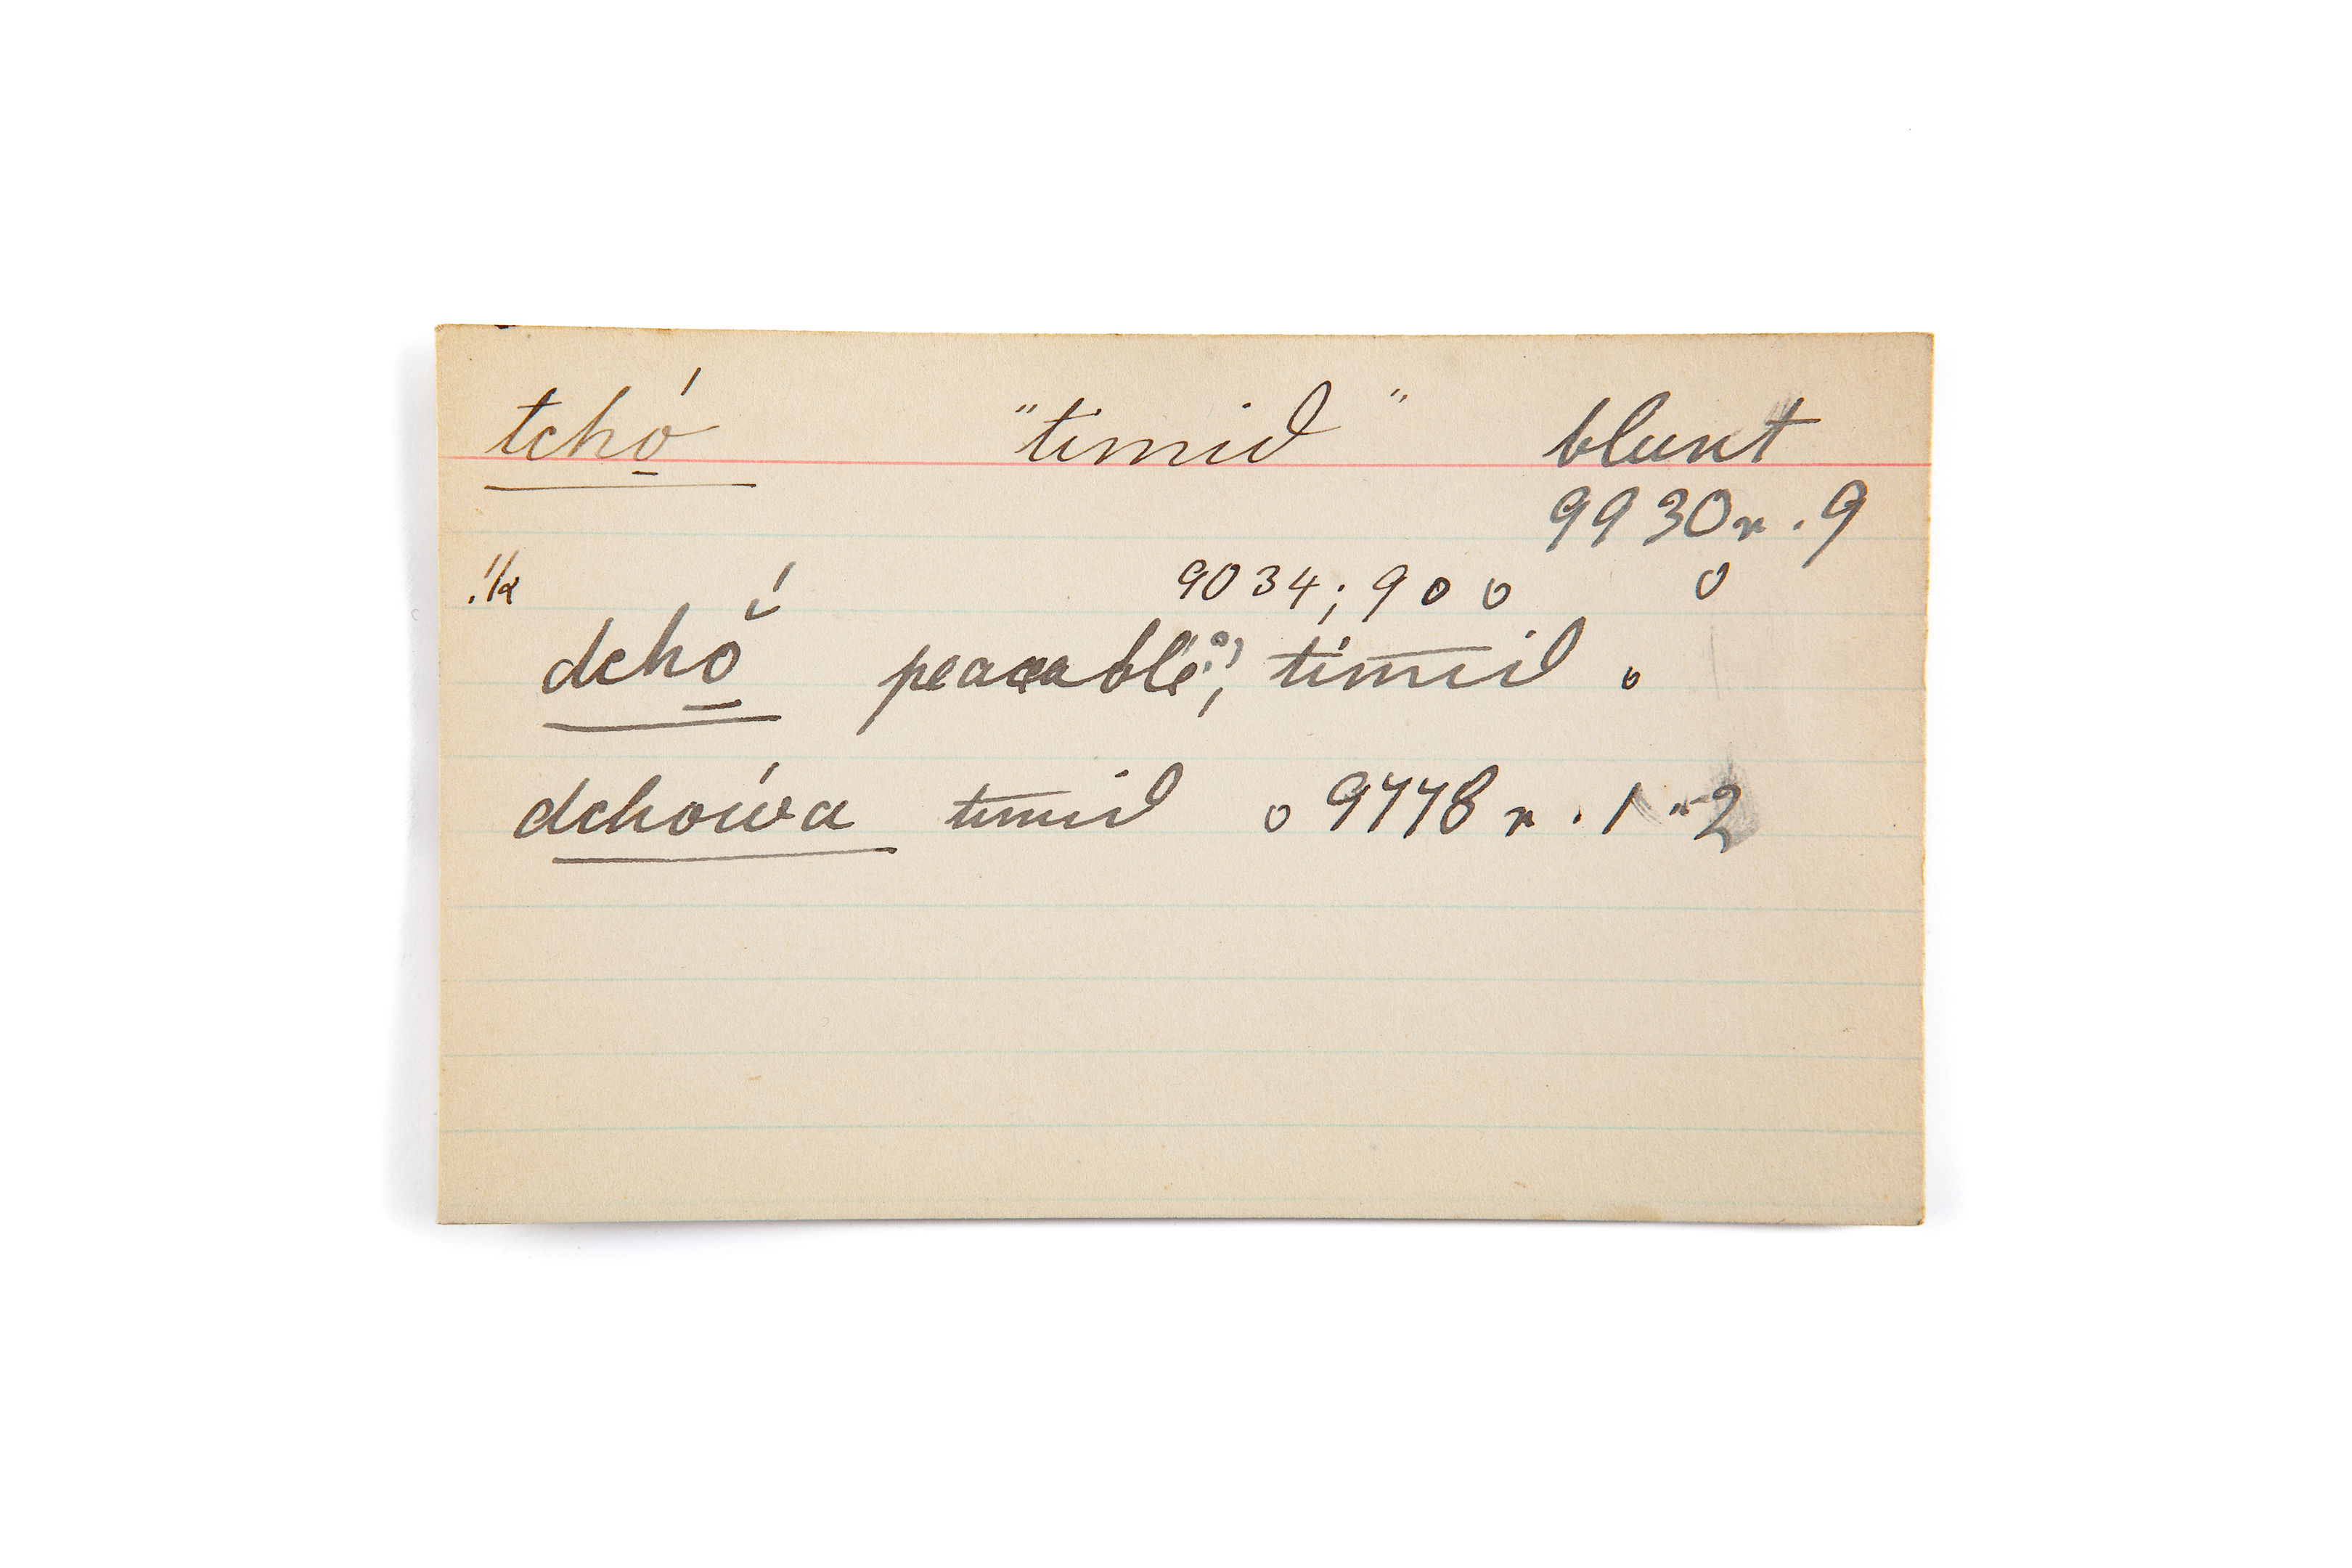 tchó̱ "timid" blunt
9930r.9
9034; 900 0
dchŏ̱́ peaceable, timid.
dchówa timid 09778r.1-2